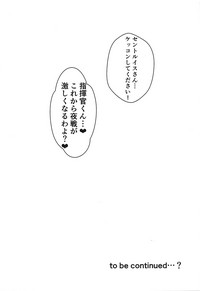 セントルイスさん…
ケッコンしてください！
指揮官くん…
これから夜戦が
激しくなるわよ？♥
to be continued…？